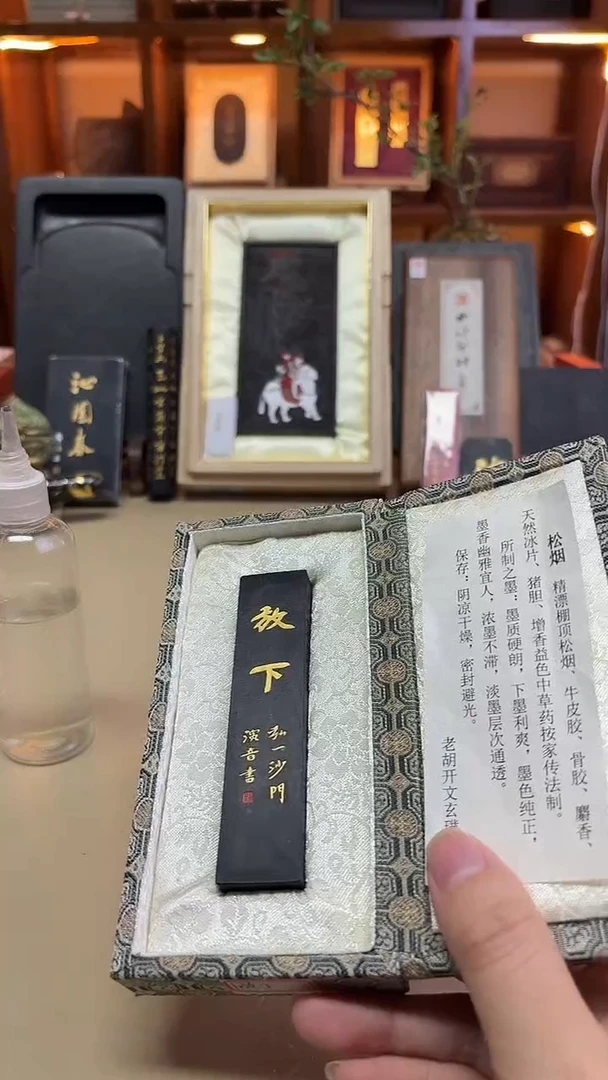 松烟 精漂棚顶松烟、牛皮胶、骨胶、麝香、
天然冰片、猪胆、增香益色中草药按家传法制。
所制之墨：墨质硬朗，下墨利爽，墨色纯正，
墨香幽雅宜人，浓墨不滞，淡墨层次通透。
保存：阴凉干燥，密封避光。
老胡开文玄
放下
弘一沙門
演音書
沁園春